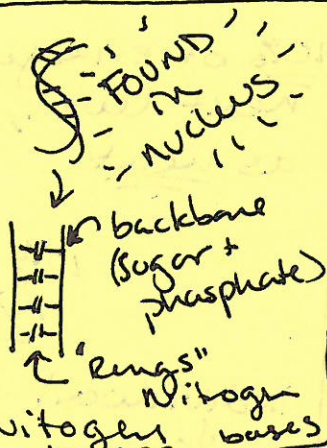 FOUND
in
nucleus
backbone
(sugar +
phosphate)
"Rungs"
Nitrogen
bases
Nitrogen